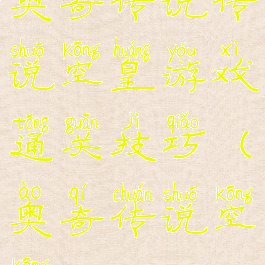 奥奇传说传
shuō kōng huáng yóu xì
说空皇游戏
tōng guān jì qiǎo
通关技巧（
ào qí chuán shuō kōng
奥奇传说空
kōng